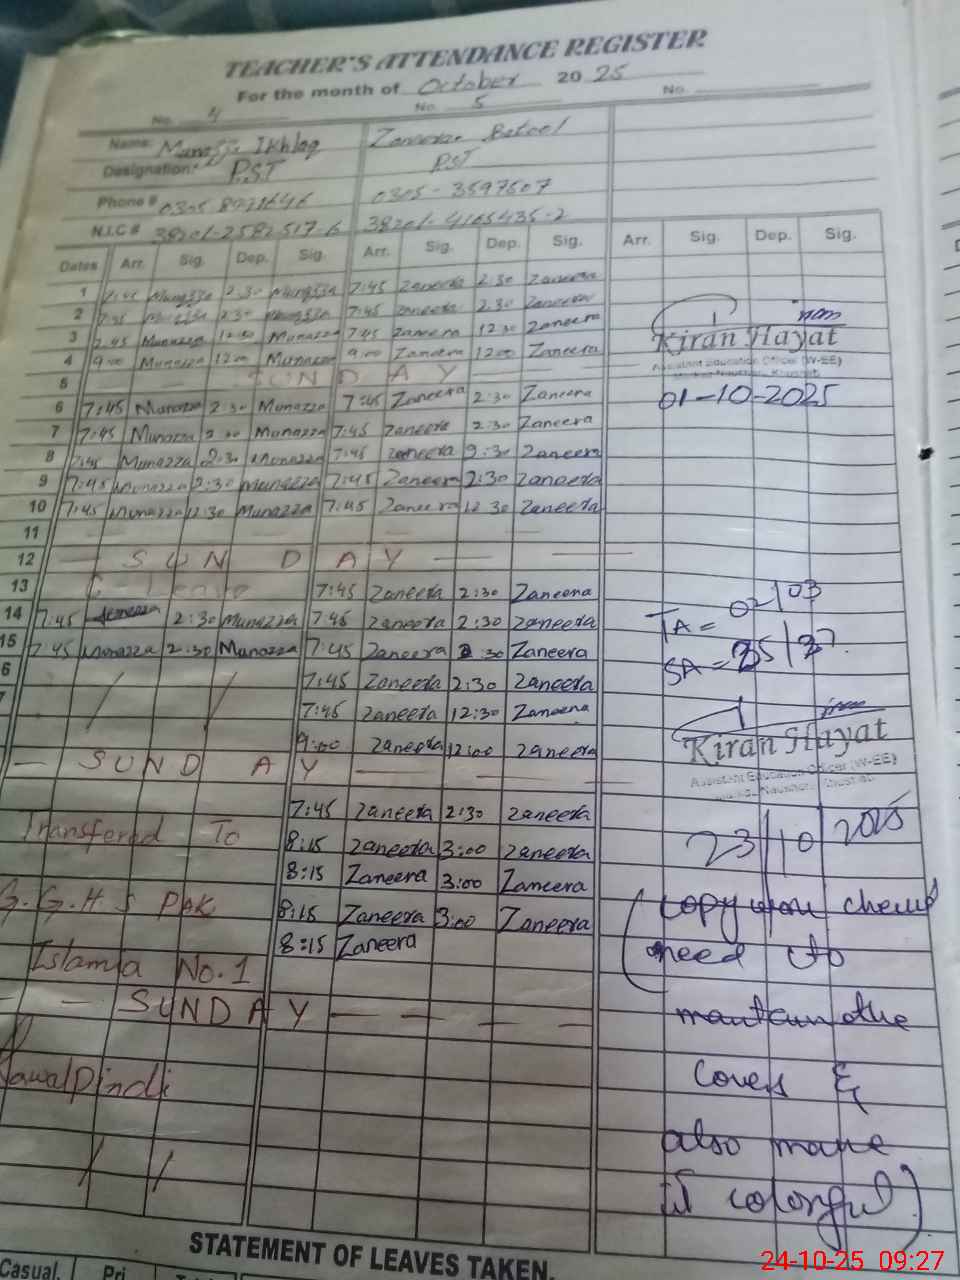 TEACHER'S ATTENDANCE REGISTER
For the month of October 2025
No. 4 No. 5 No.
Name: Munazza Ikhlaq Zaneera Batool
Designation: PST PST
Phone # 0305 0305-3597607
N.I.C # 38201-2582517-6 38201-4165435-2
Dates Arr. Sig. Dep. Sig. Arr. Sig. Dep. Sig. Arr. Sig. Dep. Sig.
1 7:45 Munazza 2:30 Munazza 7:45 Zaneera 2:30 Zaneera
2 7:45 Munazza 2:30 Munazza 7:45 Zaneera 2:30 Zaneera
3 7:45 Munazza 12:30 Munazza 7:45 Zaneera 12:30 Zaneera
Kiran Hayat
4 9:00 Munazza 12:00 Munazza 9:00 Zaneera 12:00 Zaneera
Assistant Education Officer (W-EE)
5 — SUNDAY
6 7:45 Munazza 2:30 Munazza 7:45 Zaneera 2:30 Zaneera
01-10-2025
7 7:45 Munazza 2:30 Munazza 7:45 Zaneera 2:30 Zaneera
8 7:45 Munazza 2:30 Munazza 7:45 Zaneera 2:30 Zaneera
9 7:45 Munazza 2:30 Munazza 7:45 Zaneera 2:30 Zaneera
10 7:45 Munazza 12:30 Munazza 7:45 Zaneera 12:30 Zaneera
11
12 — SUNDAY — —
13 C- Leave 7:45 Zaneera 2:30 Zaneera
14 7:45 2:30 Munazza 7:45 Zaneera 2:30 Zaneera
TA = 02/03
15 7:45 Munazza 2:30 Munazza 7:45 Zaneera 2:30 Zaneera
SA = 35/37
6 7:45 Zaneera 2:30 Zaneera
7 7:45 Zaneera 12:30 Zaneera
9:00 Zaneera 12:00 Zaneera
Kiran Hayat
Assistant Education Officer (W-EE)
— SUNDAY —
7:45 Zaneera 2:30 Zaneera
Transfered To 8:15 Zaneera 3:00 Zaneera
23/10/2025
8:15 Zaneera 3:00 Zaneera
G.G.H.S PAK 8:15 Zaneera 3:00 Zaneera
(copy
8:15 Zaneera
need to
Islamia No.1
— — SUNDAY — — — —
maintain the
Rawalpindi
covers &
also make
it colorful)
STATEMENT OF LEAVES TAKEN.
Casual. Pri
24-10-25 09:27